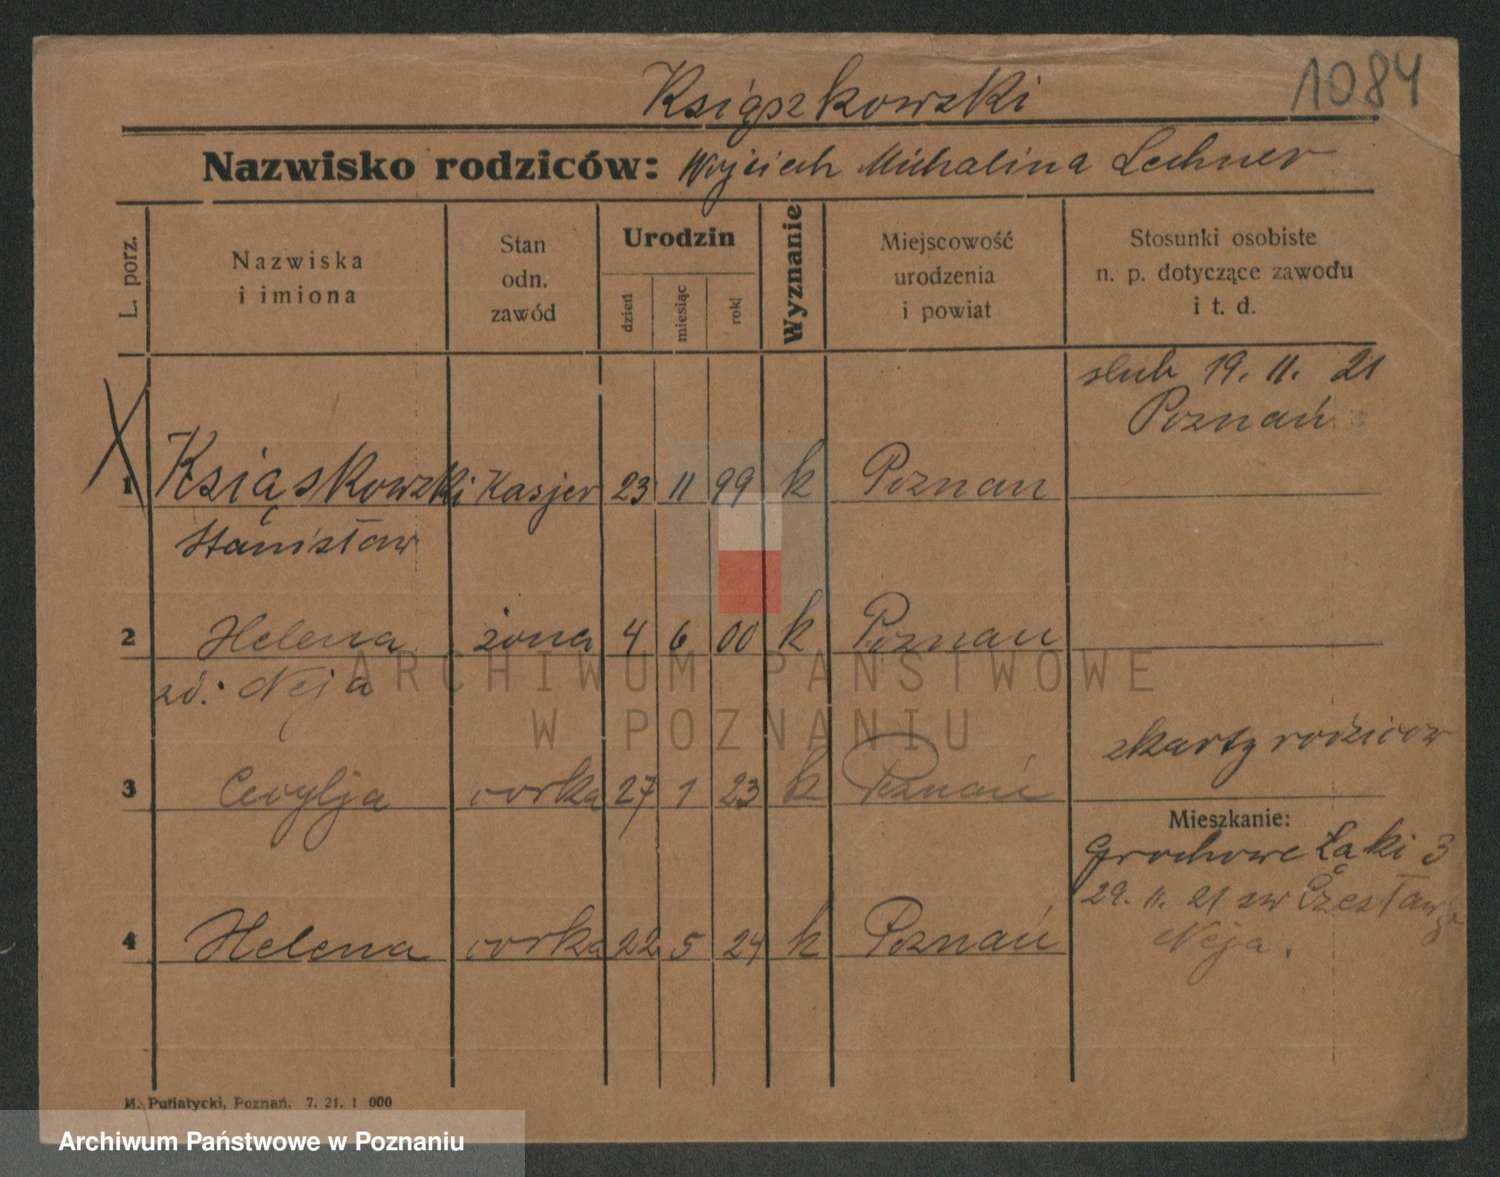 Książkowski
1084
Nazwisko rodziców: Wojciech Michalina Lechner
L. porz.
Nazwiska
i imiona
Stan
odn.
zawód
Urodzin
dzień
miesiąc
rok
Wyznanie
Miejscowość
urodzenia
i powiat
Stosunki osobiste
n. p. dotyczące zawodu
i t. d.
slub 19. 11. 21
Poznań
1 Książkowski Kasjer 23 11 99 k Poznan
Stanisław
2 Helena żona 4 6 00 k Poznan
zd. Neja
z karty rodzicow
3 Cecylja corka 27 1 23 k Poznań
Mieszkanie:
Grochowe Łąki 3
29. 11. 21 zw Czesława
Neja.
4 Helena corka 22 5 24 k Poznań
M. Putiatycki, Poznań. 7. 21. 1 000
ARCHIWUM PAŃSTWOWE
W POZNANIU
Archiwum Państwowe w Poznaniu